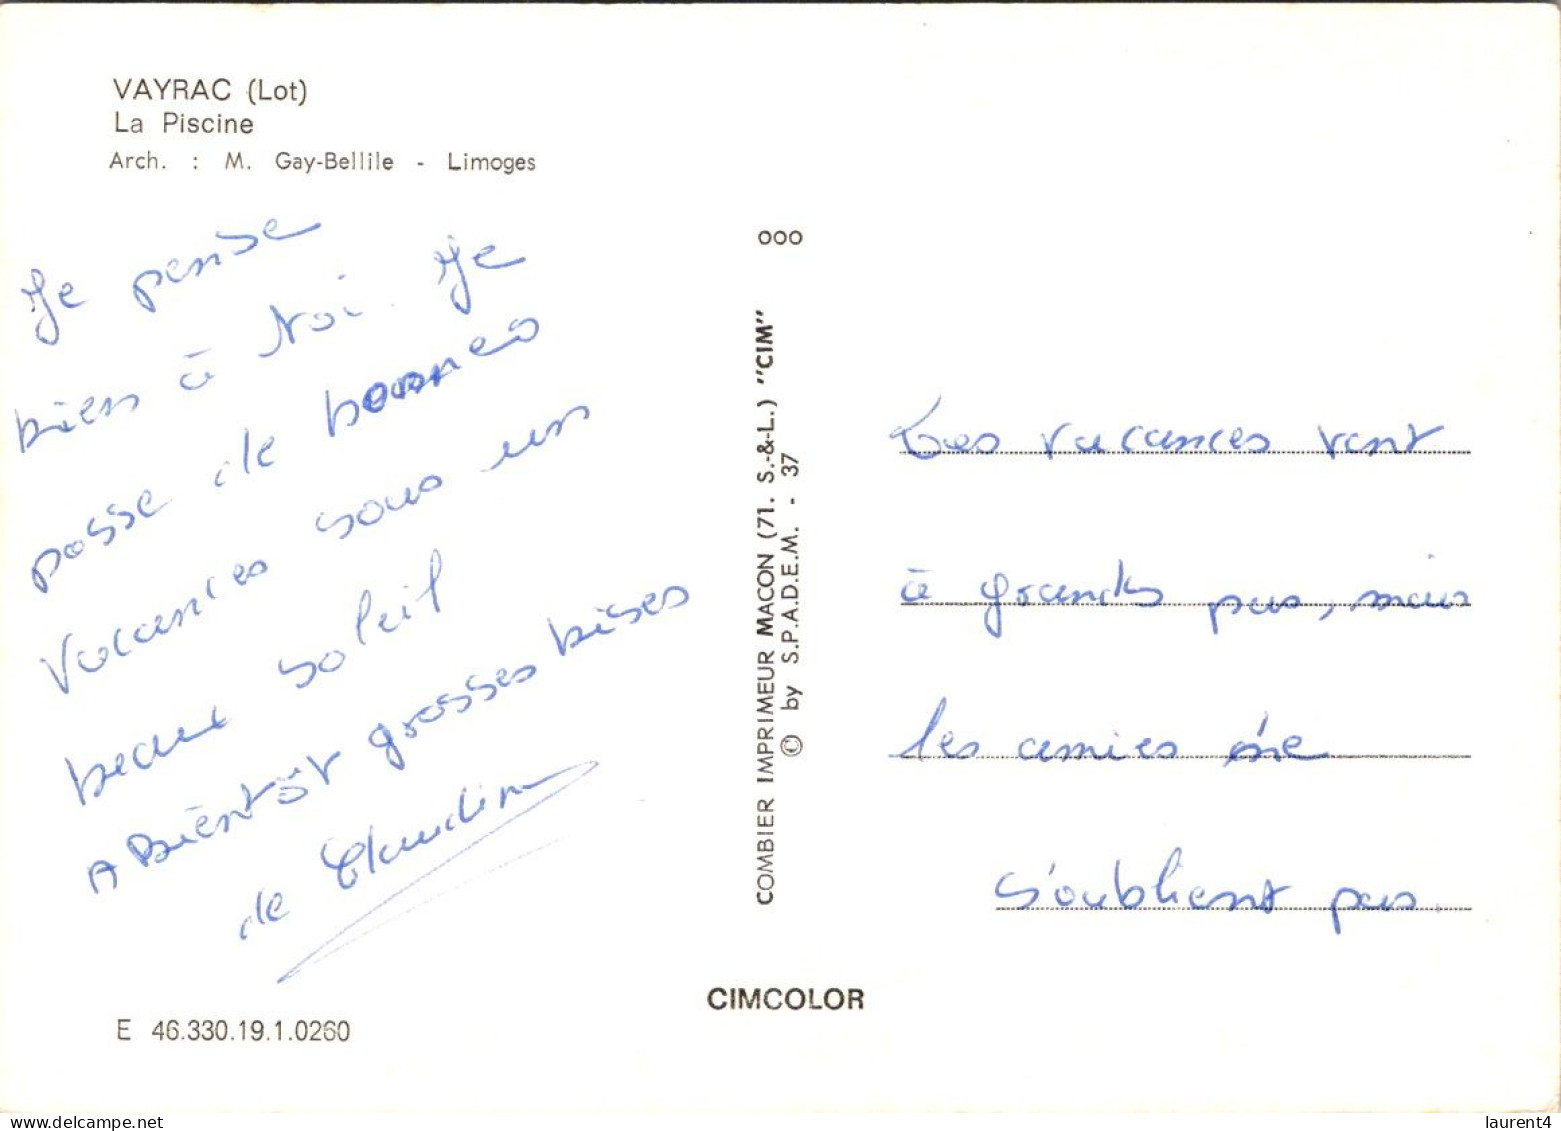 VAYRAC (Lot)
La Piscine
Arch. : M. Gay-Bellile - Limoges
Je pense
bien à toi. Je
passe de bonnes
vacances sous un
beau soleil
A Bientôt grosses bises
de Claudine
E 46.330.19.1.0260
ooo
COMBIER IMPRIMEUR MACON (71. S.-&-L.) "CIM"
© by S.P.A.D.E.M. - 37
CIMCOLOR
Les vacances vont
à grands pas, mais
les amies ne
s'oublient pas.
laurent4
delcampe.net